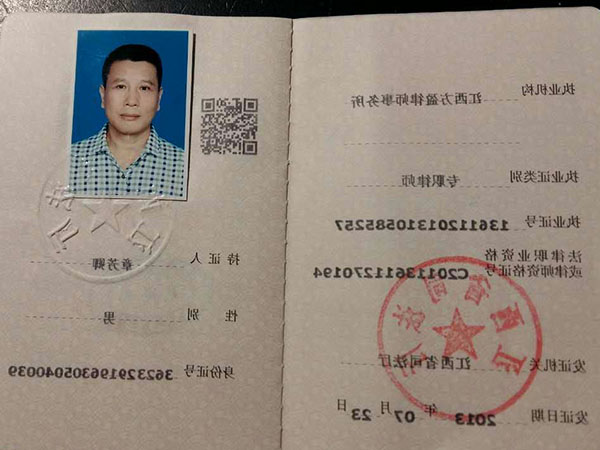 执业机构 江西方盈律师事务所
执业证类别 专职律师
执业证号 13611201310585257
法律职业资格
或律师资格证号 C20113611270194
发证机关 江西省司法厅
发证日期 2013 年 07 月 23 日
江西省司法厅
持证人 章芳卿
性别 男
身份证号 362329196305040039